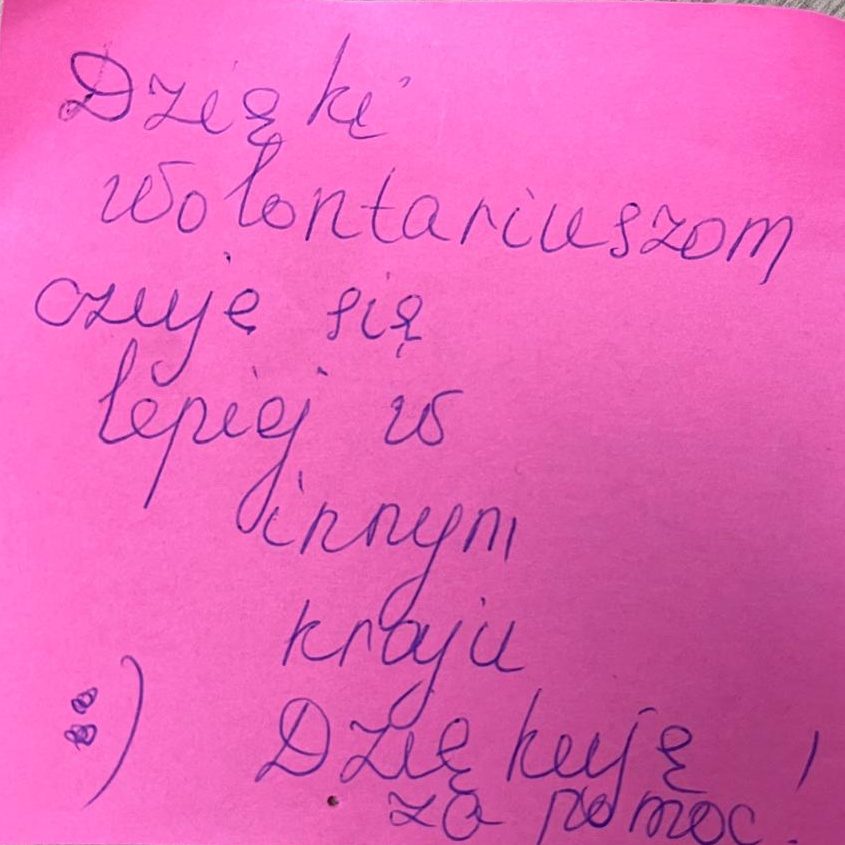 Dzięki
wolontariuszom
czuję się
lepiej w
innym
kraju
:) Dziękuję
za pomoc!